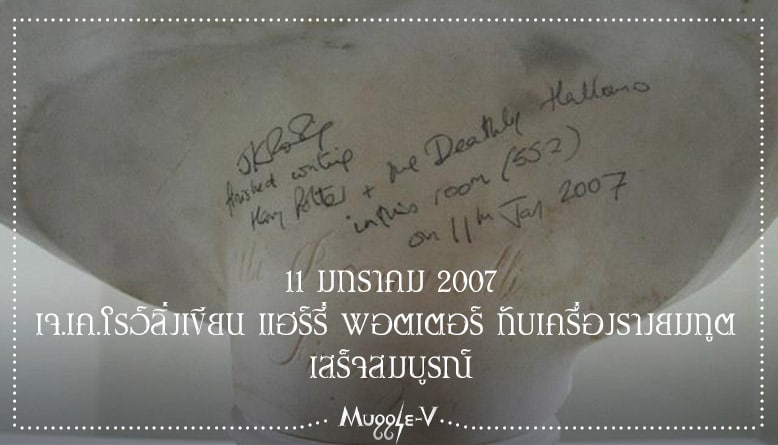 JKRowling
finished writing
Harry Potter + the Deathly Hallows
in this room (552)
on 11th Jan 2007
11 มกราคม 2007
เจ.เค.โรว์ลิ่งเขียน แฮร์รี่ พอตเตอร์ กับเครื่องรางยมทูต
เสร็จสมบูรณ์
Muggle-V